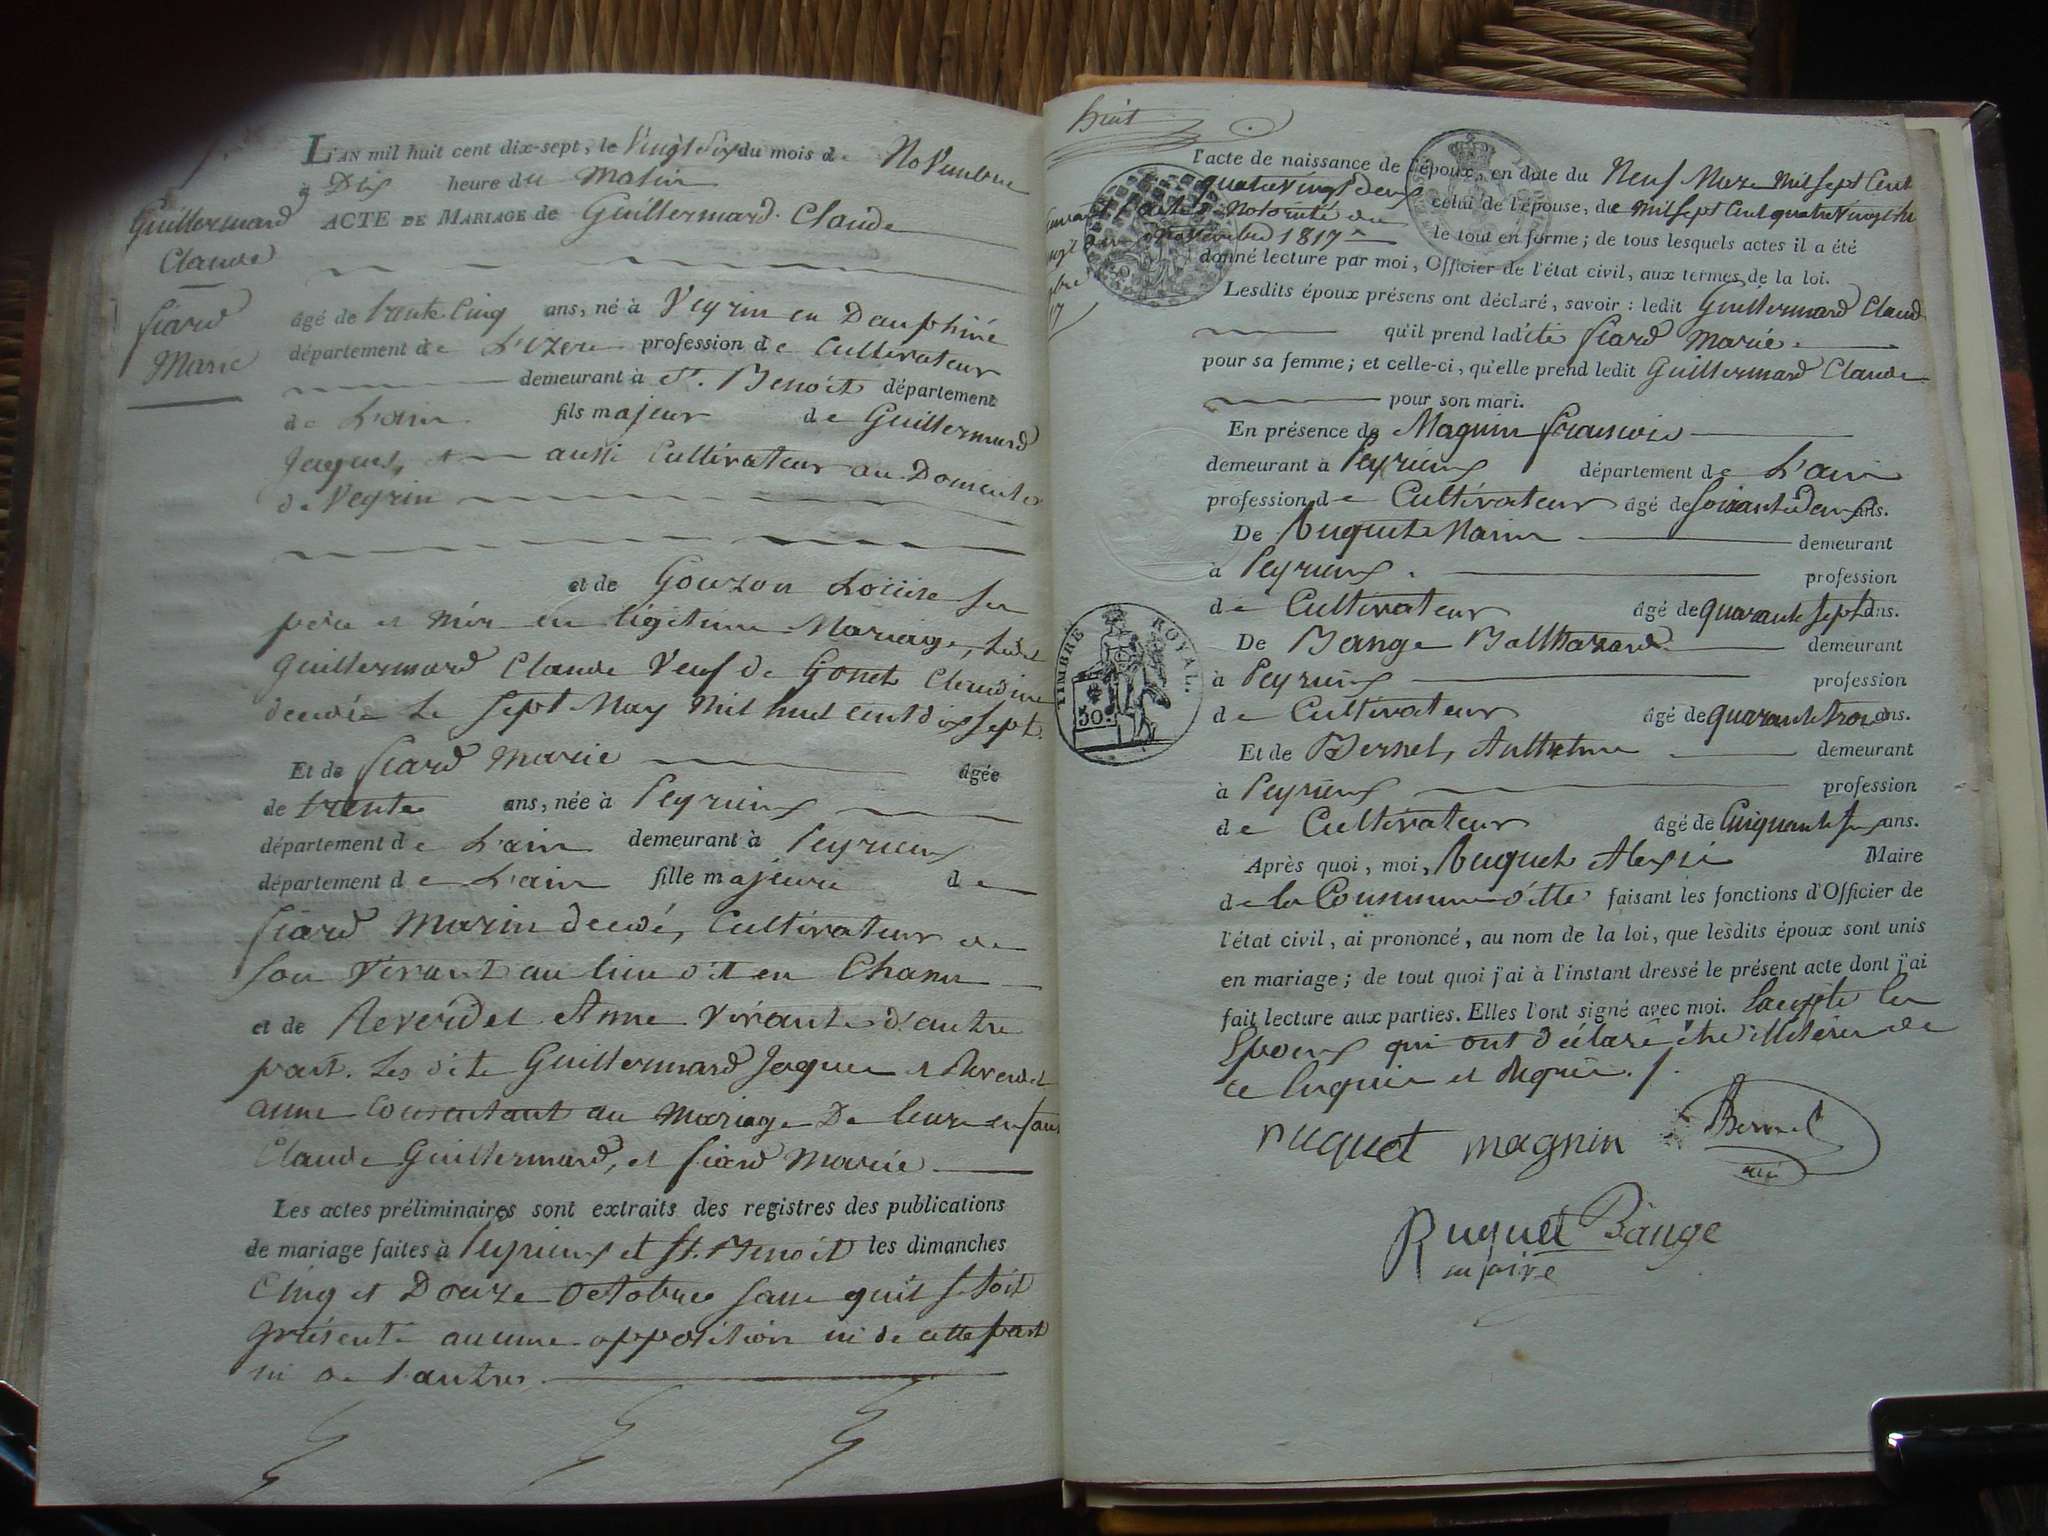 L'AN mil huit cent dix-sept, le Vingt Six du mois de Novembre
à Dix heure du Matin
Guillermard
Claude
Fiard
Marie
ACTE DE MARIAGE de Guillermard Claude
âgé de trente Cinq ans, né à Veyrin en Dauphiné
département de L'izere profession de Cultivateur
demeurant à St. Benoit département
de L'ain fils majeur de Guillermard
Jaques, et aussi Cultivateur au
de Veyrin
et de Gouzon Louise ses
père et mère en légitime Mariage, ledit
Guillermard Claude Veuf de Gonet Claudine
décédée Le Sept May Mil huit cent dix sept
Et de Fiard Marie âgée
de trente ans, née à Peyrieux
département de L'ain demeurant à Peyrieux
département de L'ain fille majeure de
Fiard Marin décédé, Cultivateur de
son Vivant au lieu dit en Chanu
et de Reverdet Anne Vivante d'autre
part. Les dits Guillermard Jaques et Reverdet
anne consentant au Mariage De leurs enfans
Claude Guillermard, et Fiard Marie
Les actes préliminaires sont extraits des registres des publications
de mariage faites à Peyrieux et St. Benoit les dimanches
Cinq et Douze Octobre sans quil se soit
présenté aucune opposition ni de cette part
ni de l'autre
huit
l'acte de naissance de l'époux, en date du Neuf Mars Mil sept Cent
quatre vingt deux celui de l'épouse, du Mil sept Cent quatre vingt
acte de Notoriété du
novembre 1817 le tout en forme; de tous lesquels actes il a été
donné lecture par moi, Officier de l'état civil, aux termes de la loi.
Lesdits époux présens ont déclaré, savoir: ledit Guillermard Claude
qu'il prend ladite Fiard Marie
pour sa femme; et celle-ci, qu'elle prend ledit Guillermard Claude
pour son mari.
En présence de Magnin François
demeurant à Peyrieux département de L'ain
profession de Cultivateur âgé de soixante deux ans.
De Ruguet Marin demeurant
à Peyrieux profession
de Cultivateur âgé de quarante sept ans.
De Bange Balthazard demeurant
à Peyrieux profession
de Cultivateur âgé de quarante trois ans.
Et de Bernet, Anthelme demeurant
à Peyrieux profession
de Cultivateur âgé de Cinquante six ans.
Après quoi, moi, Ruguet Alexis Maire
de la Commune ditte faisant les fonctions d'Officier de
l'état civil, ai prononcé, au nom de la loi, que lesdits époux sont unis
en mariage; de tout quoi j'ai à l'instant dressé le présent acte dont j'ai
fait lecture aux parties. Elles l'ont signé avec moi. Excepté les
Epoux qui ont déclaré être illitérés de
ce enquis et requis.
TIMBRE ROYAL.
50
ruguet magnin Bernet
Ruguet Bange
maire